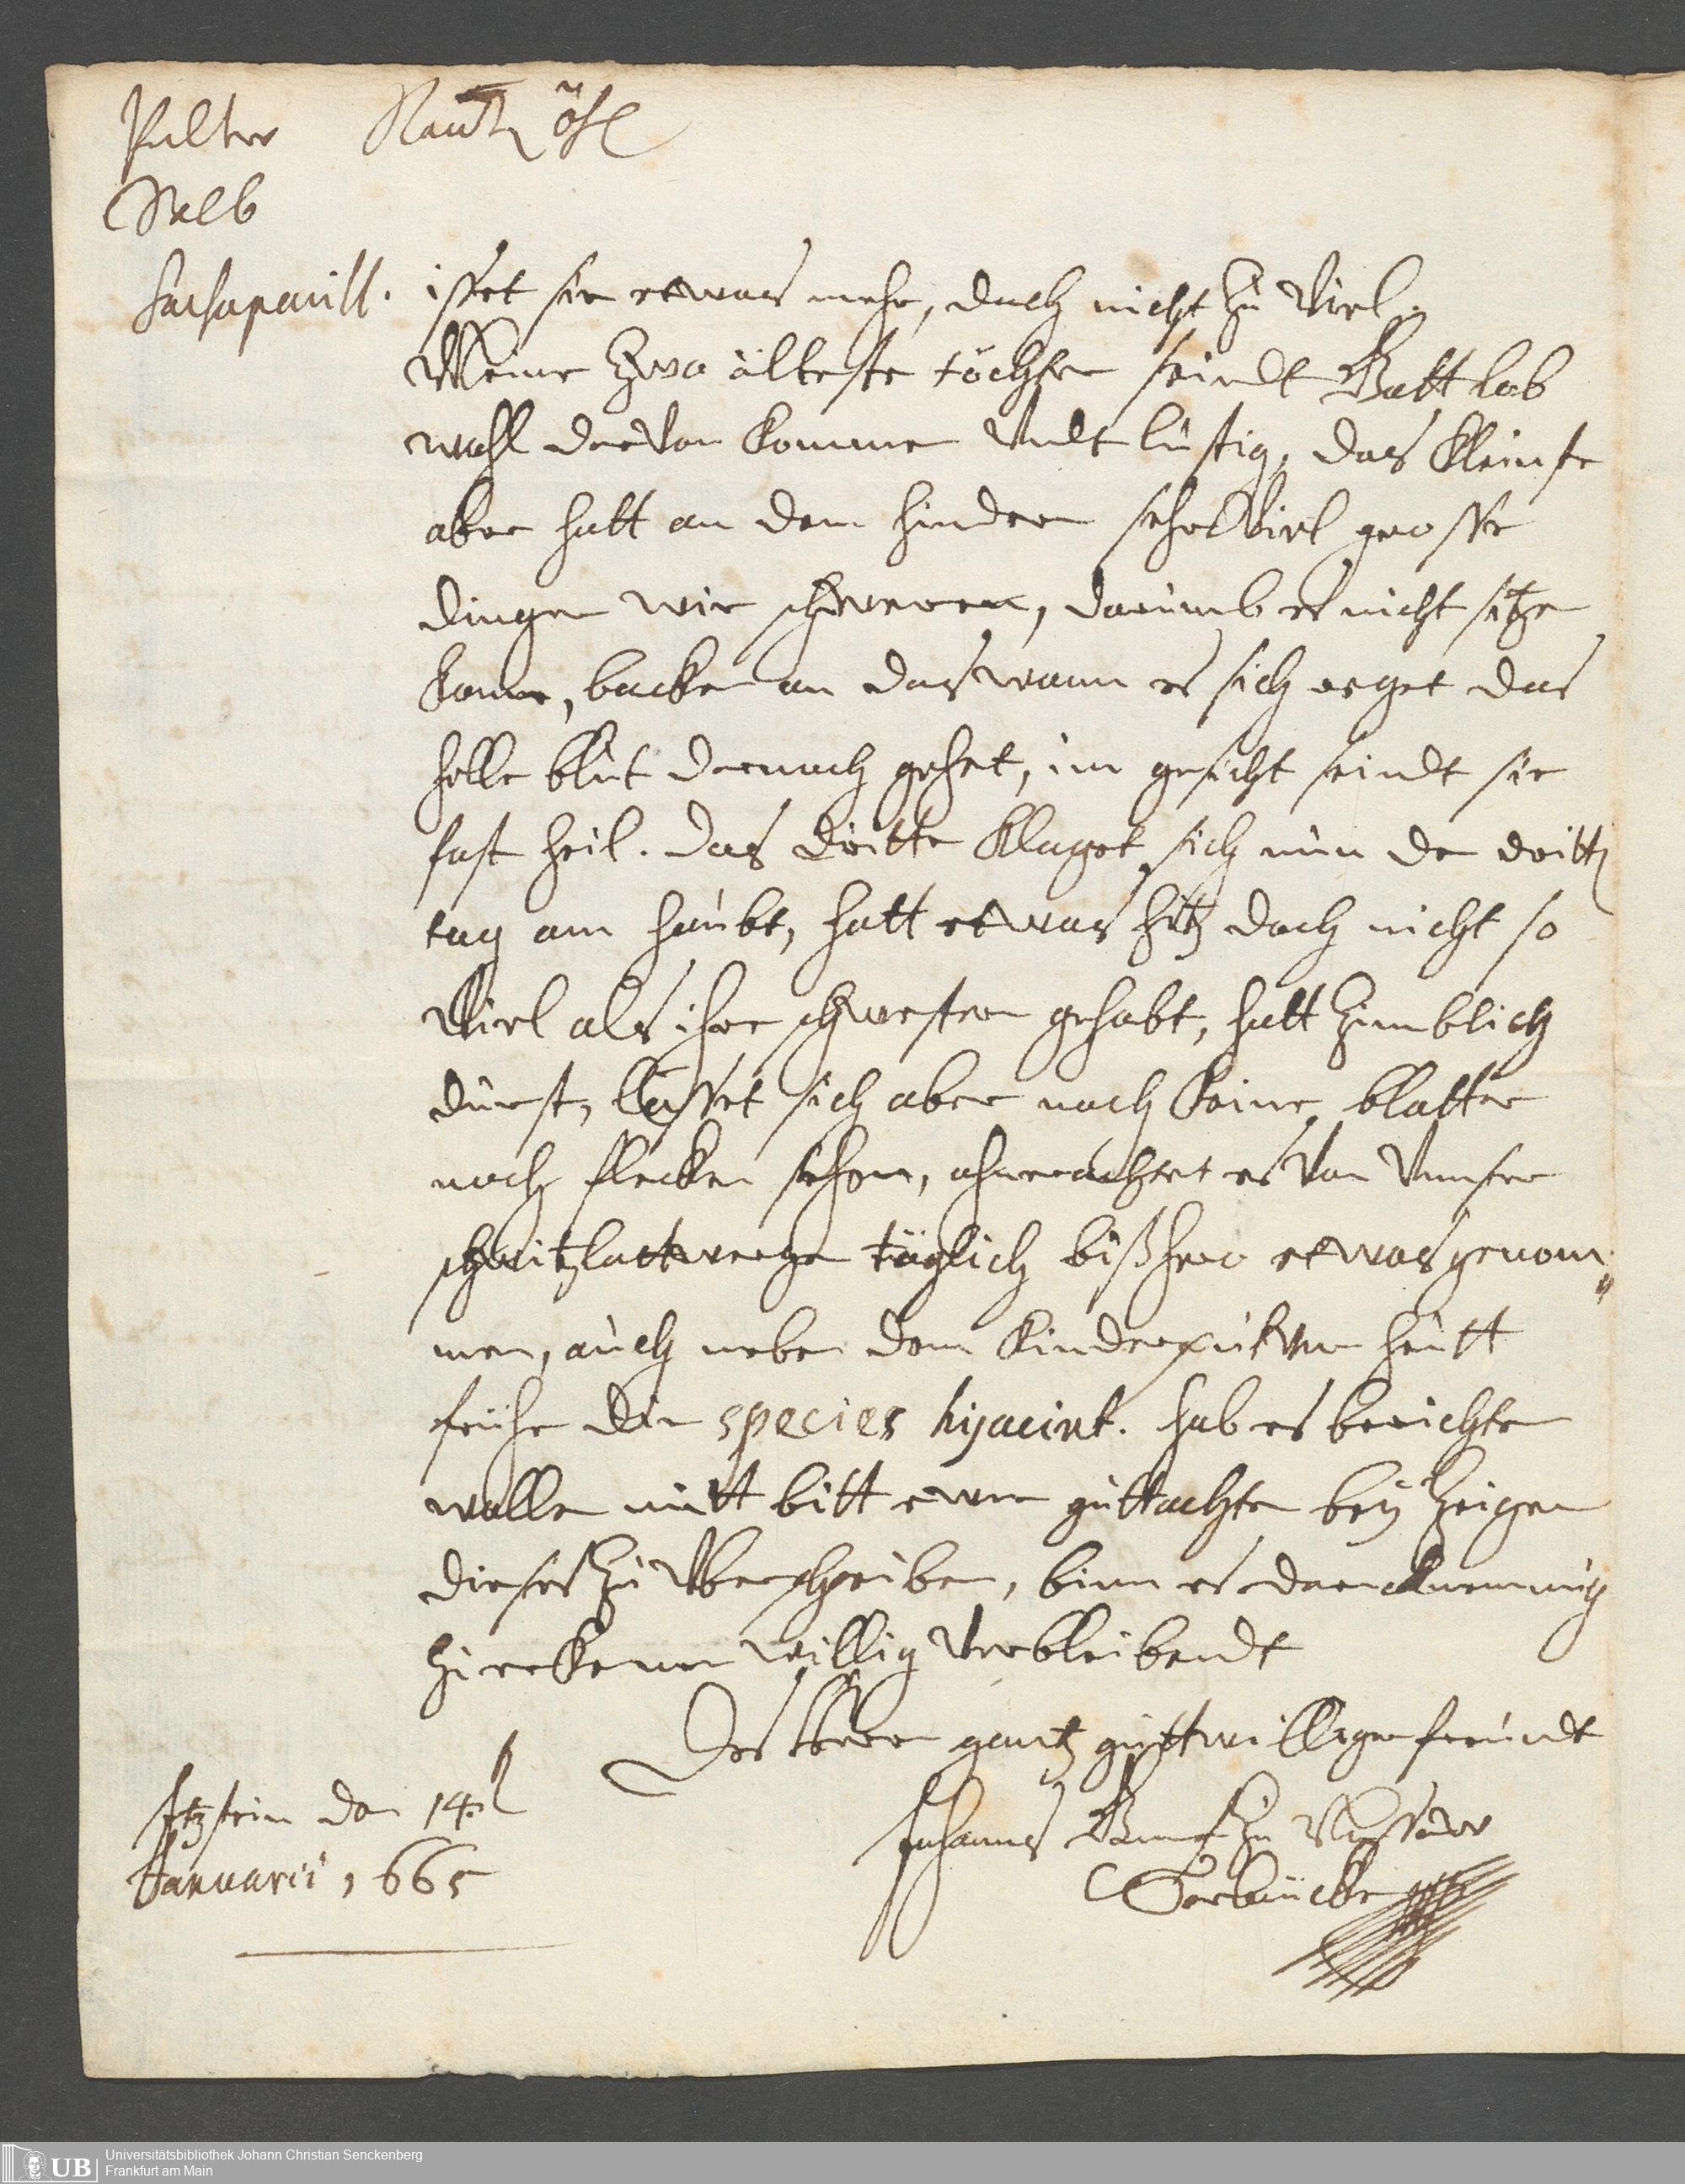 Pulver Raut öhl
Salb
Sarsaparill.
isset sie etwas mehr, doch nicht zu Viel.
Meine zwo älteste töchter seindt Gott lob
wohl darVon kommen Vndt lustig, das kleinste
aber hatt an dem hindern sehr Viel grosse
dingen wie schweren, darumb es nicht sitzen
kann, backen an das wann es sich reget das
helle blut dernach gehet, im gesicht seindt sie
fast heil. das dritte klaget sich nun den dritten
tag am haubt, hatt etwas hitz doch nicht so
Viel als ihre schwestern gehabt, hatt zimblich
durst, lässet sich aber noch keine blatter
noch flecken sehen, ohnerachtet es Von Vnser
schwitzlattwergen täglich bißhero etwas genom,,
men, auch neben dem kinderpulver heutt
frühe die species hyacint. hab es berichten
wollen mitt bitt ewer guttachten bey zeigern
dieses zu Vberschreiben, binn es dancknemmig
zu erkennen willig Verbleibendt
Des Herrn gantz guttwilliger freundt
Johannes Graf zu Nassaw
Sarbrücken
Itzstein den 14.
Januarii, 665
UB
Universitätsbibliothek Johann Christian Senckenberg
Frankfurt am Main